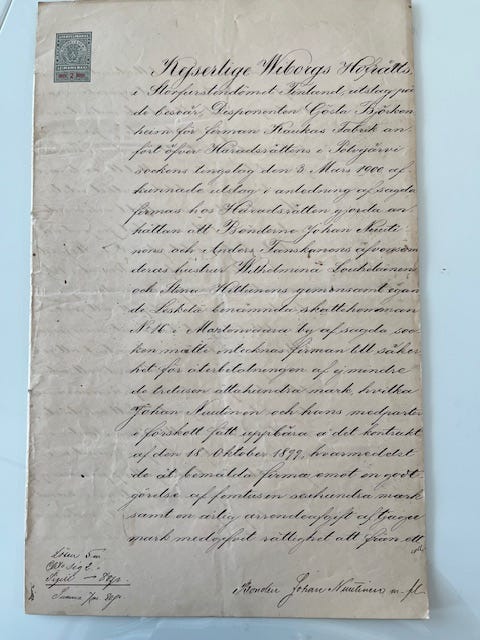 Kejserlige Wiborgs Hofrätts,
i Storfurstendömet Finland, utslag på
de besvär, Disponenten Gösta Björken
heim för firman Kaukas Fabrik an
fört öfver Häradsrättens i Polvijärvi
sockens tingslag den 3 Mars 1900 af
kunnade utslag i anledning af sagda
firmas hos Häradsrätten gjorda an
hållan att Bönderne Johan Nuuti
nens och Anders Tanskanens äfvensom
deras hustrur Wilhelmina Loukelainens
och Stina Hiltunens gemensamt egan
de Leskelä benämnda skattehemman
No 16 i Martonvaara by af sagda soc
ken måtte intecknas firman till säker
het för återbetalningen af ej mindre
de tretusen åttahundra mark, hvilka
Johan Nuutinen och hans medparter
i förskott fått uppbära å det kontrakt
af den 18 Oktober 1899, hvarmedelst
de åt bemälda firma emot en godt
görelse af femtusen sexhundra mark
samt en årlig arrendeafgift af tjugo
mark medgifvit rättighet att från ett
Lösen 5 m
Sigill
Summa
Bonden Johan Nuutinen
2